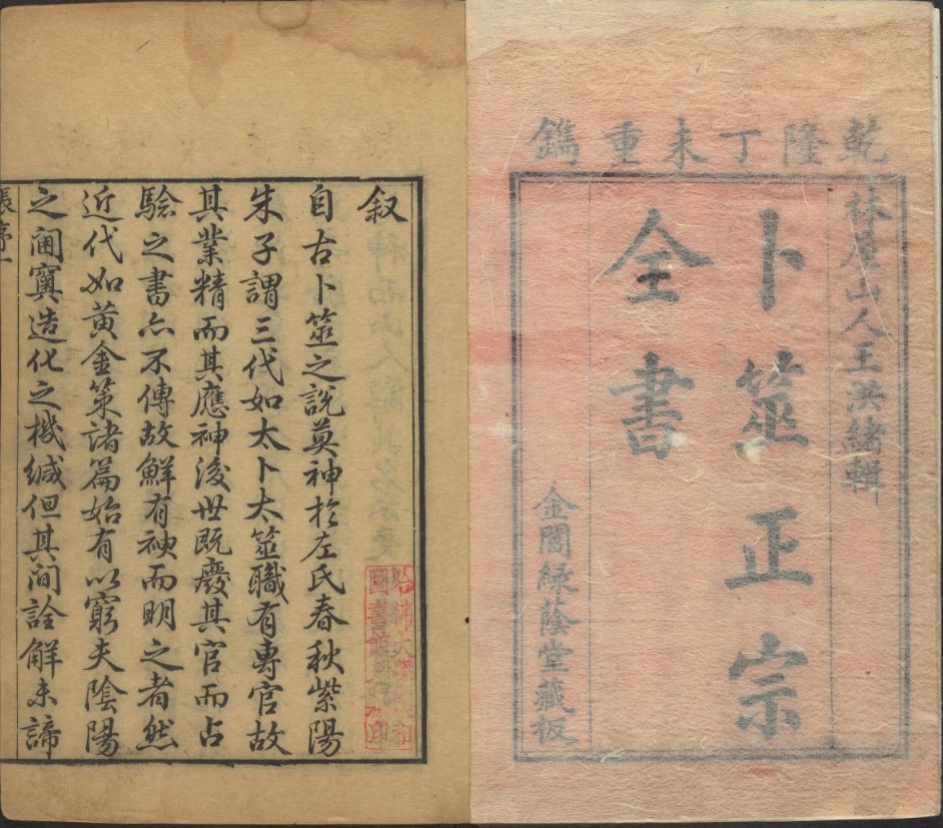 乾隆丁未重鐫
林屋山人王洪緒輯
卜筮正宗
全書
金閶緑蔭堂藏板
叙
自古卜筮之説莫神於左氏春秋紫陽
朱子謂三代如太卜大筮職有專官故
其業精而其應神後世既廢其官而占
驗之書亦不傳故鮮有神而明之者然
近代如黄金策諸篇始有以窮夫陰陽
之閫奧造化之機緘但其间詮解未諦
張序一
哈佛大學
圖書館
印